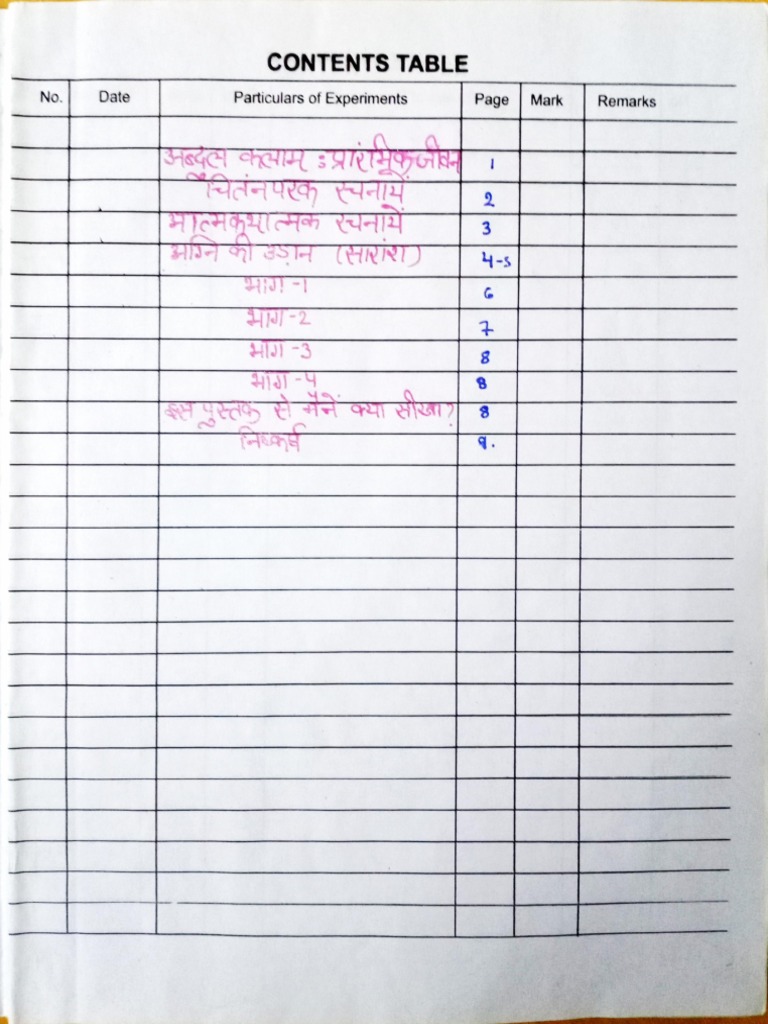 CONTENTS TABLE
No. Date Particulars of Experiments Page Mark Remarks
अब्दुल कलाम : प्रारंभिक जीवन 1
चितंनपरक रचनायें 2
आत्मकथात्मक रचनायें 3
अग्नि की उड़ान (सारांश) 4-5
भाग -1 6
भाग -2 7
भाग -3 8
भाग -4 8
इस पुस्तक से मैनें क्या सीखा? 8
निष्कर्ष 9.